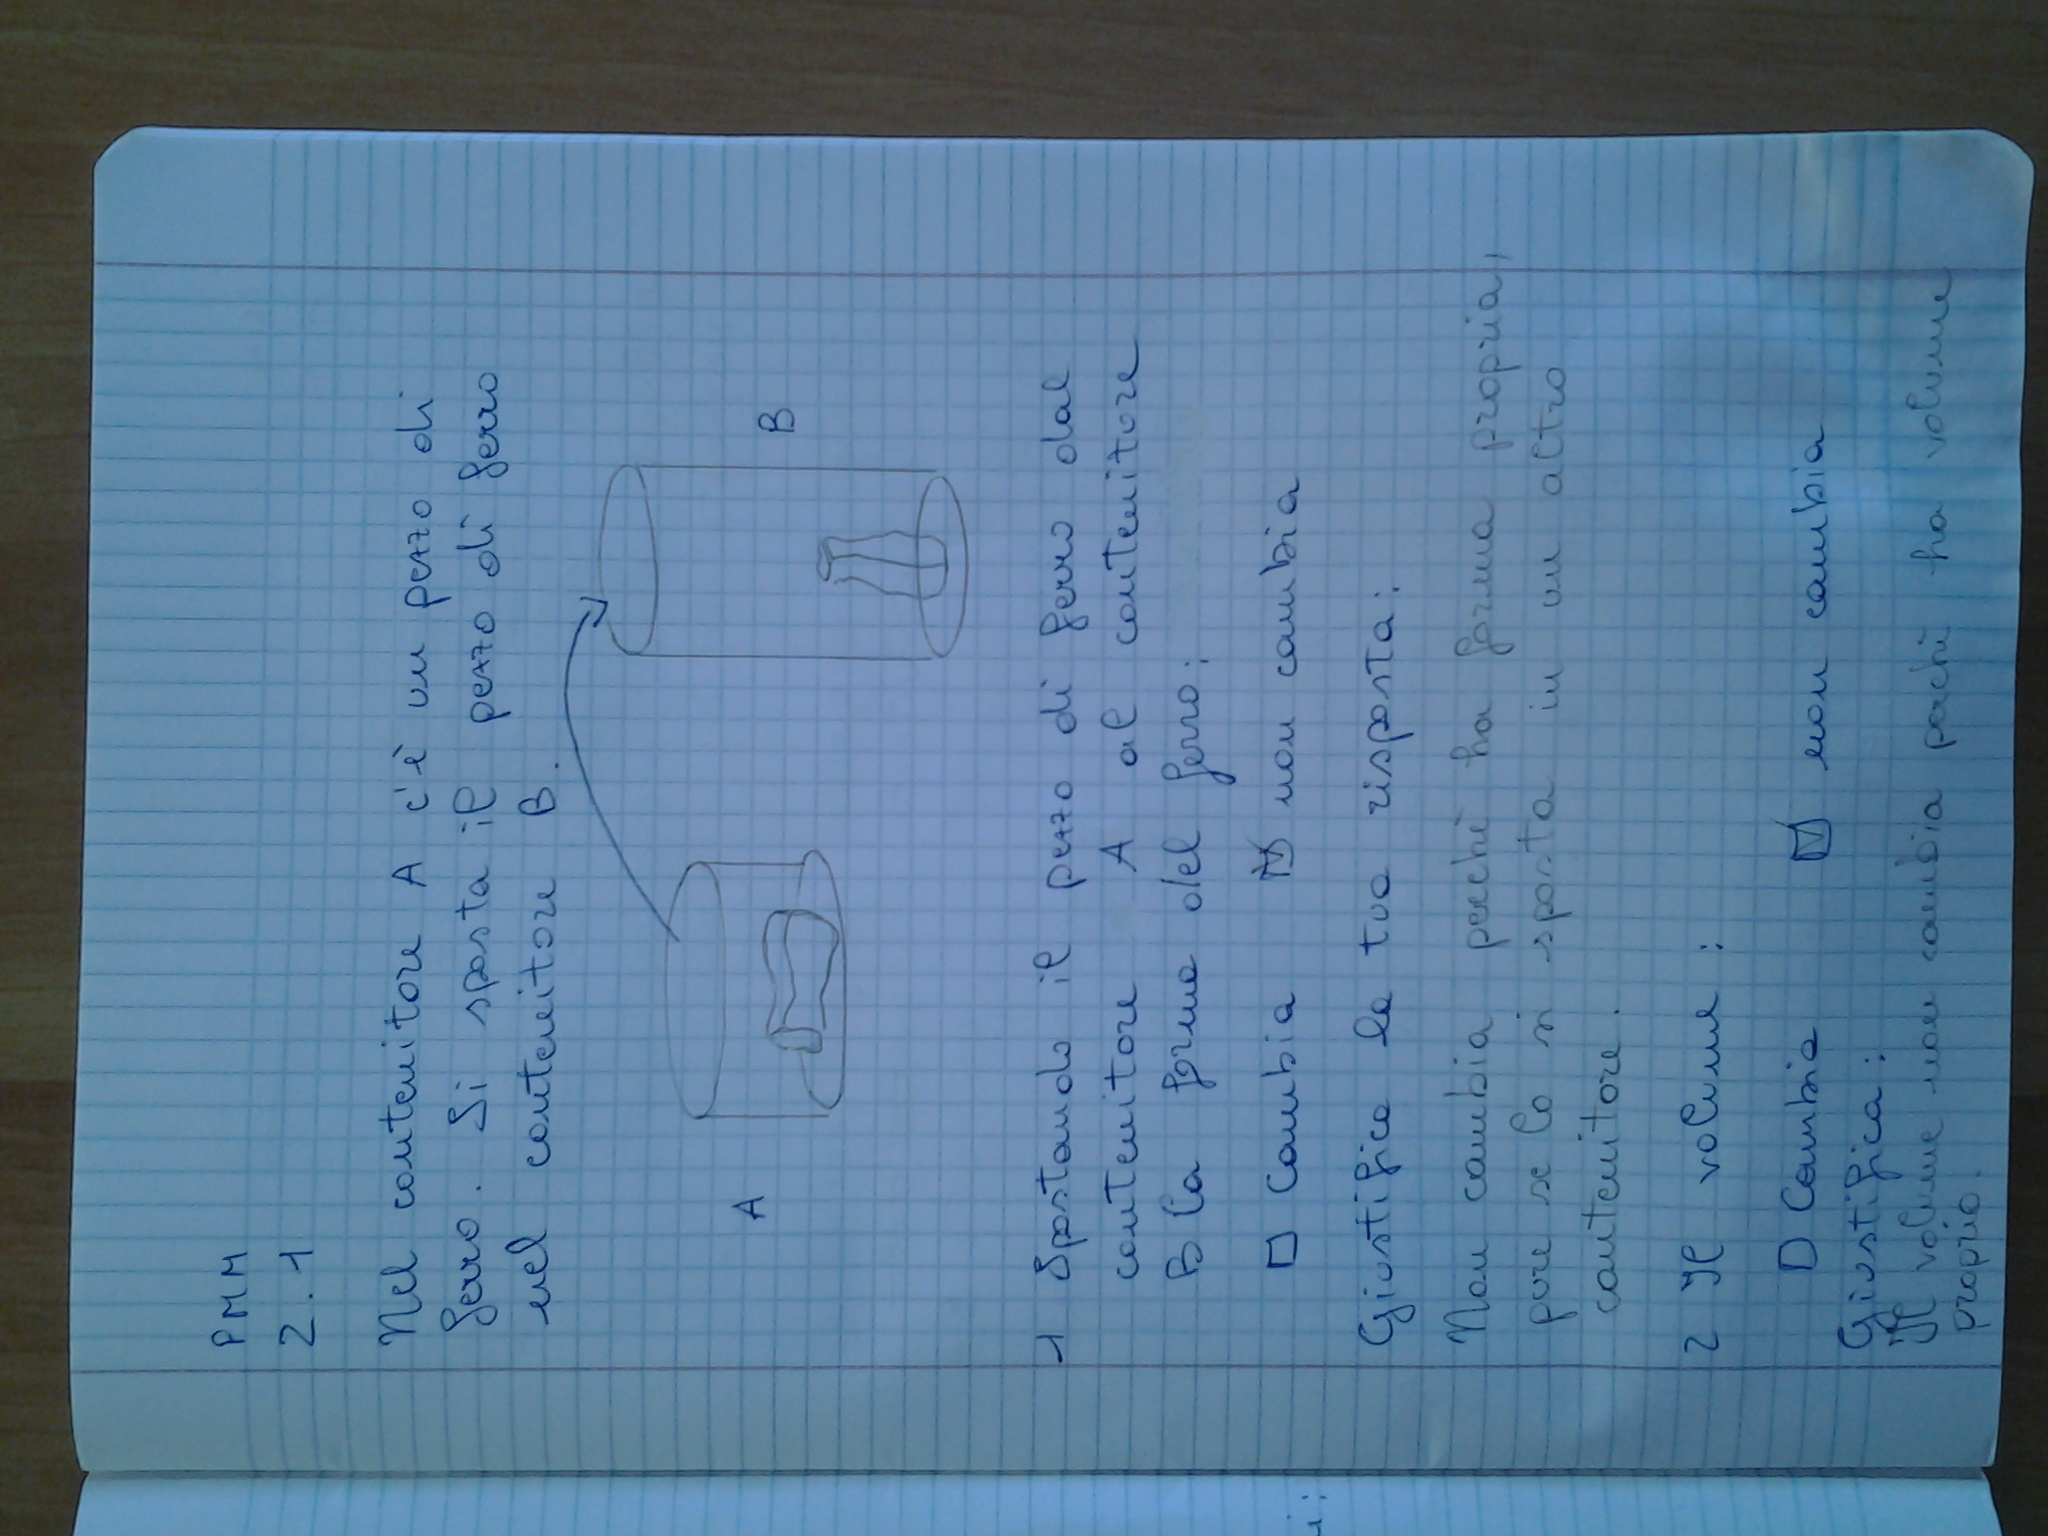 PMM
2.1
Nel contenitore A c'è un pezzo di
ferro. Si sposta il pezzo di ferro
nel contenitore B.
A
B
1 Spostando il pezzo di ferro dal
contenitore A al contenitore
B la forma del ferro:
□ Cambia ☑ non cambia
Giustifica la tua risposta:
Non cambia perchè ha forma propria,
pure se lo si sposta in un altro
contenitore.
2 Il volume:
□ Cambia ☑ non cambia
Giustifica:
Il volume non cambia perchè ha volume
proprio.